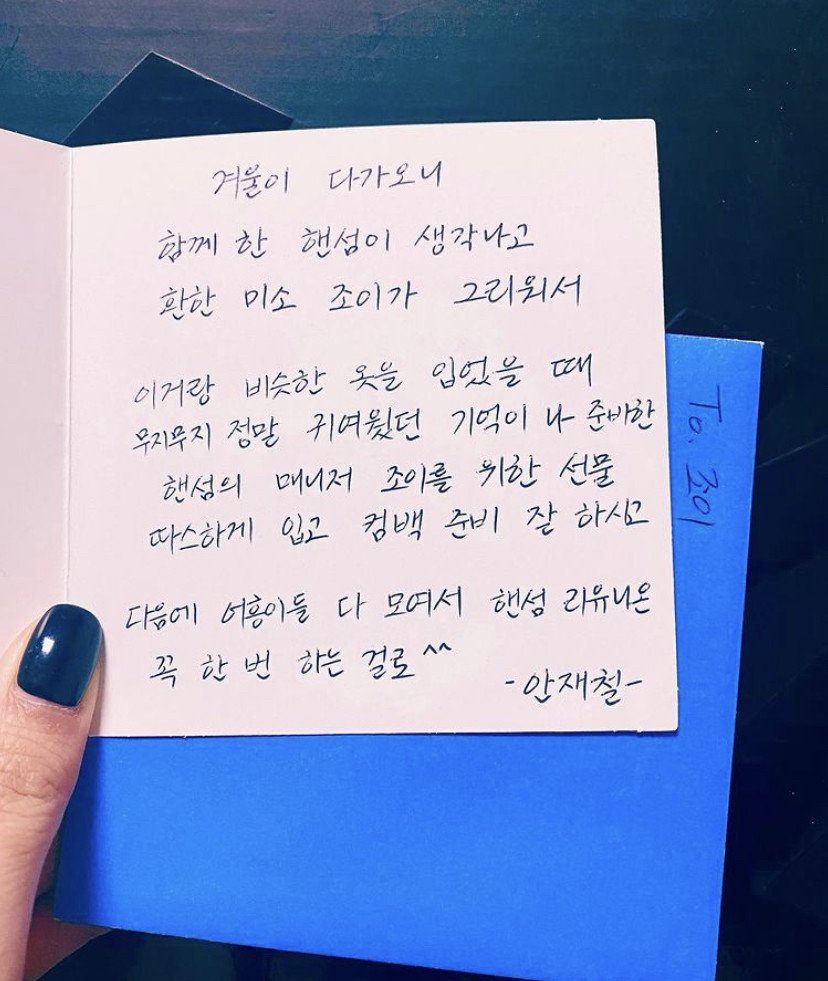 겨울이 다가오니
함께 한 핸섬이 생각나고
환한 미소 조이가 그리워서
이거랑 비슷한 옷을 입었을 때
무지무지 정말 귀여웠던 기억이 나 준비한
핸섬의 매니저 조이를 위한 선물
따스하게 입고 컴백 준비 잘 하시고
다음에 어흥이들 다 모여서 핸섬 리유니온
꼭 한 번 하는 걸로^^
-안재철-
To. 조이